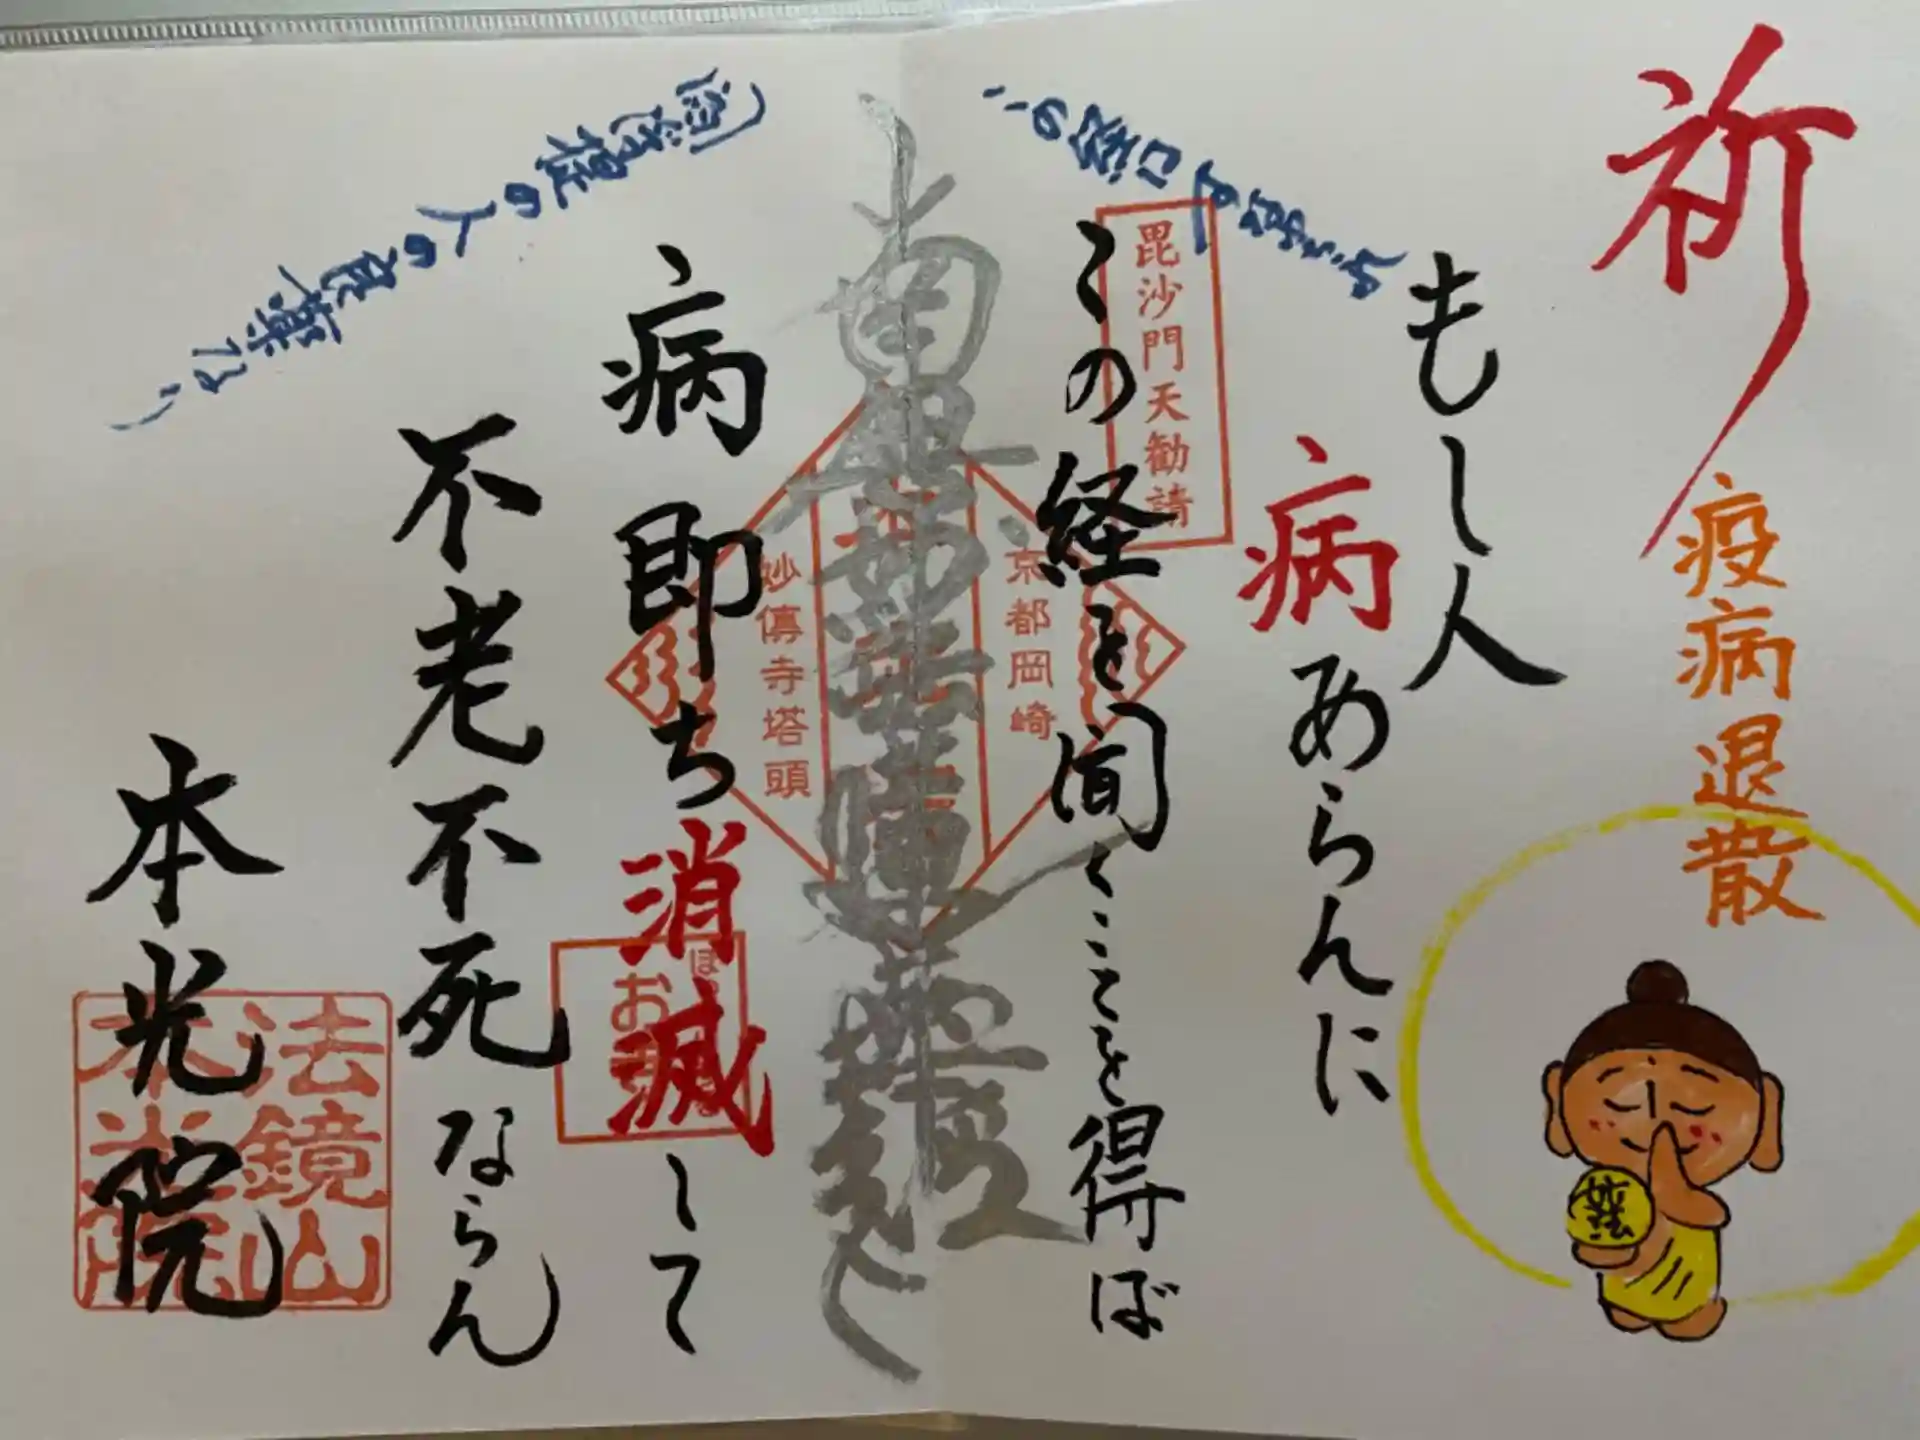 祈
疫病退散
この経は
閻浮提の人の良薬なり
もし人
病あらんに
この経を聞くことを得ば
南無妙法蓮華経
病即ち消滅して
不老不死ならん
本光院
毘沙門天勧請
京都岡崎
妙傳寺塔頭
法鏡山
本光院
妙法